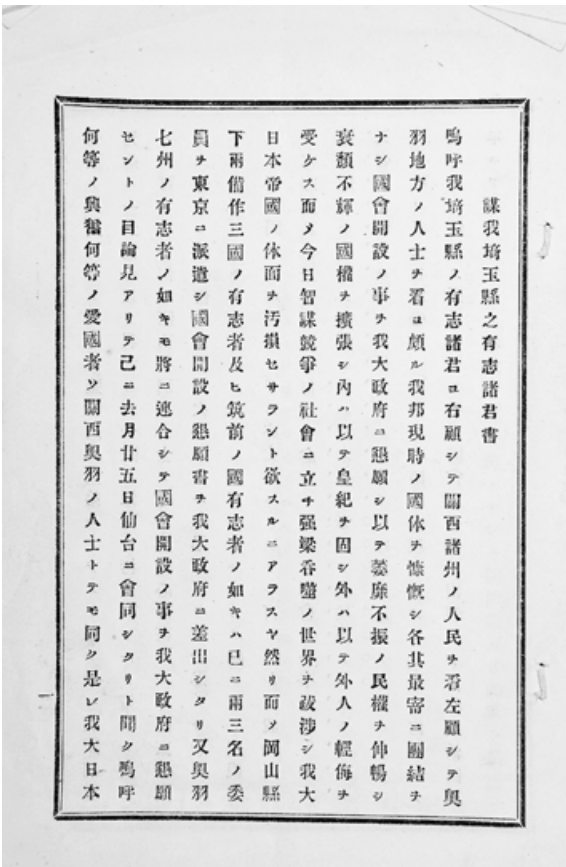 謀我埼玉縣之有志諸君書
嗚呼我埼玉縣ノ有志諸君ヨ右顧シテ關西諸州ノ人民ヲ看左顧シテ奧
羽地方ノ人士ヲ看ヨ頗ル我邦現時ノ國体ヲ慷慨シ各其最寄ニ團結ヲ
ナシ國會開設ノ事ヲ我大政府ニ懇願シ以テ萎靡不振ノ民權ヲ伸暢シ
衰頽不輝ノ國權ヲ擴張シ內ハ以テ皇紀ヲ固シ外ハ以テ外人ノ輕侮ヲ
受ケス而メ今日智謀競爭ノ社會ニ立チ强梁呑噬ノ世界ヲ跋涉シ我大
日本帝國ノ体面ヲ汚損セサラント欲スルニアラスヤ然リ而メ岡山縣
下兩備作三國ノ有志者及ヒ筑前ノ國有志者ノ如キハ已ニ兩三名ノ委
員ヲ東京ニ派遣シ國會開設ノ懇願書ヲ我大政府ニ差出シタリ又奧羽
七州ノ有志者ノ如キモ將ニ連合シテ國會開設ノ事ヲ我大政府ニ懇願
セントノ目論見アリテ已ニ去月廿五日仙台ニ會同シタリト聞ク嗚呼
何等ノ興奮何等ノ愛國者ソ關西奧羽ノ人士トテモ同ク是レ我大日本